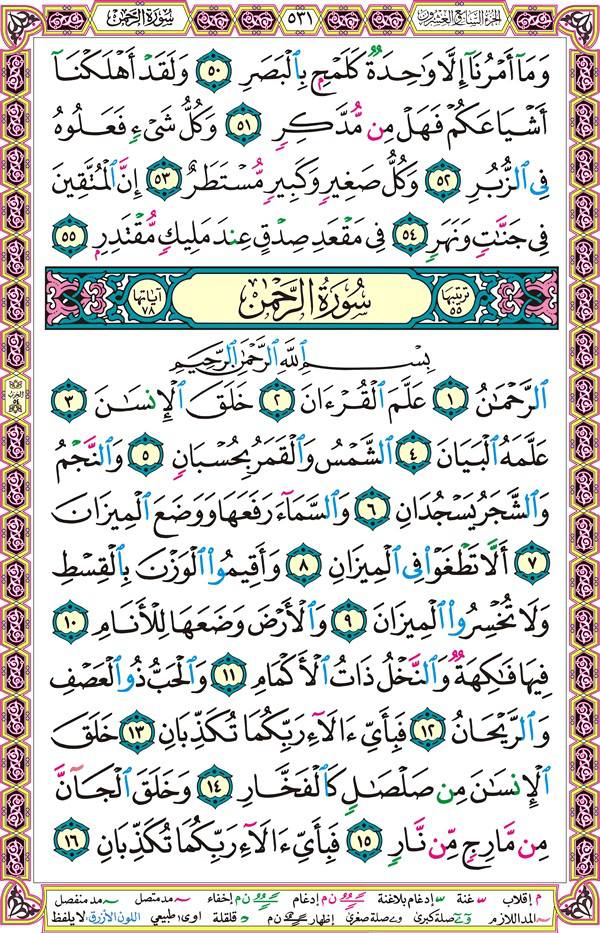 الجزء السابع والعشرون ٥٣١ سورة الرحمن
وَمَآ أَمْرُنَآ إِلَّا وَٰحِدَةٌ كَلَمْحٍۭ بِٱلْبَصَرِ ٥٠ وَلَقَدْ أَهْلَكْنَآ
أَشْيَاعَكُمْ فَهَلْ مِن مُّدَّكِرٍ ٥١ وَكُلُّ شَىْءٍ فَعَلُوهُ
فِى ٱلزُّبُرِ ٥٢ وَكُلُّ صَغِيرٍ وَكَبِيرٍ مُّسْتَطَرٌ ٥٣ إِنَّ ٱلْمُتَّقِينَ
فِى جَنَّٰتٍ وَنَهَرٍ ٥٤ فِى مَقْعَدِ صِدْقٍ عِندَ مَلِيكٍ مُّقْتَدِرٍۭ ٥٥
ترتيبها ٥٥ سُورَةُ الرَّحْمَٰن آياتها ٧٨
بِسْمِ ٱللَّهِ ٱلرَّحْمَٰنِ ٱلرَّحِيمِ
ٱلرَّحْمَٰنُ ١ عَلَّمَ ٱلْقُرْءَانَ ٢ خَلَقَ ٱلْإِنسَٰنَ ٣
عَلَّمَهُ ٱلْبَيَانَ ٤ ٱلشَّمْسُ وَٱلْقَمَرُ بِحُسْبَانٍ ٥ وَٱلنَّجْمُ
وَٱلشَّجَرُ يَسْجُدَانِ ٦ وَٱلسَّمَآءَ رَفَعَهَا وَوَضَعَ ٱلْمِيزَانَ
٧ أَلَّا تَطْغَوْا۟ فِى ٱلْمِيزَانِ ٨ وَأَقِيمُوا۟ ٱلْوَزْنَ بِٱلْقِسْطِ
وَلَا تُخْسِرُوا۟ ٱلْمِيزَانَ ٩ وَٱلْأَرْضَ وَضَعَهَا لِلْأَنَامِ ١٠
فِيهَا فَٰكِهَةٌ وَٱلنَّخْلُ ذَاتُ ٱلْأَكْمَامِ ١١ وَٱلْحَبُّ ذُو ٱلْعَصْفِ
وَٱلرَّيْحَانُ ١٢ فَبِأَىِّ ءَالَآءِ رَبِّكُمَا تُكَذِّبَانِ ١٣ خَلَقَ
ٱلْإِنسَٰنَ مِن صَلْصَٰلٍ كَٱلْفَخَّارِ ١٤ وَخَلَقَ ٱلْجَآنَّ
مِن مَّارِجٍ مِّن نَّارٍ ١٥ فَبِأَىِّ ءَالَآءِ رَبِّكُمَا تُكَذِّبَانِ ١٦
م إقلاب غنة إدغام بلاغنة ن م إدغام ن م إخفاء مد متصل مد منفصل
المد اللازم صلة كبرى صلة صغرى إظهار ن م قلقلة اوى طبيعي اللون الأزرق لا يلفظ